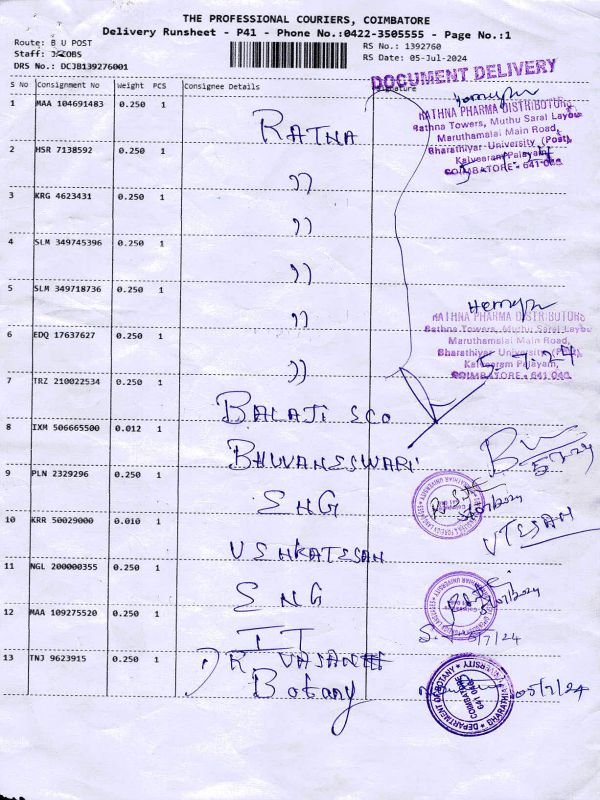 THE PROFESSIONAL COURIERS, COIMBATORE
Delivery Runsheet - P41 - Phone No.:0422-3505555 - Page No.:1
Route: B U POST
Staff: JACOBS
DRS No.: DCJB139276001
RS No.: 1392760
RS Date: 05-Jul-2024
DOCUMENT DELIVERY
S No Consignment No Weight PCS Consignee Details Signature
1 MAA 104691483 0.250 1 RATNA
RATHNA PHARMA DISTRIBUTORS
Rathna Towers, Muthu Saral Layout
Maruthamalai Main Road,
Bharathiyar University (Post),
Kalveeram Palayam,
COIMBATORE - 641 046
2 HSR 7138592 0.250 1 ))
3 KRG 4623431 0.250 1 ))
4 SLM 349745396 0.250 1 ))
5 SLM 349718736 0.250 1 ))
RATHNA PHARMA DISTRIBUTORS
Rathna Towers, Muthu Saral Layou
Maruthamalai Main Road,
Bharathiyar University (Post),
Kalveeram Palayam,
COIMBATORE - 641 046
5-7-24
6 EDQ 17637627 0.250 1 ))
7 TRZ 210022534 0.250 1 BALAJI SCO
8 IXM 506665500 0.012 1 BHUVANESWARI
9 PLN 2329296 0.250 1 ENG
5/07/2024
10 KRR 50029000 0.010 1 VENKATESAN
VTESAN
11 NGL 200000355 0.250 1 ENG
5/07/2024
12 MAA 109275520 0.250 1 IT
5/7/24
13 TNJ 9623915 0.250 1 R VASANTH
Botany
05/7/24
DEPARTMENT OF BOTANY
COIMBATORE
641 046